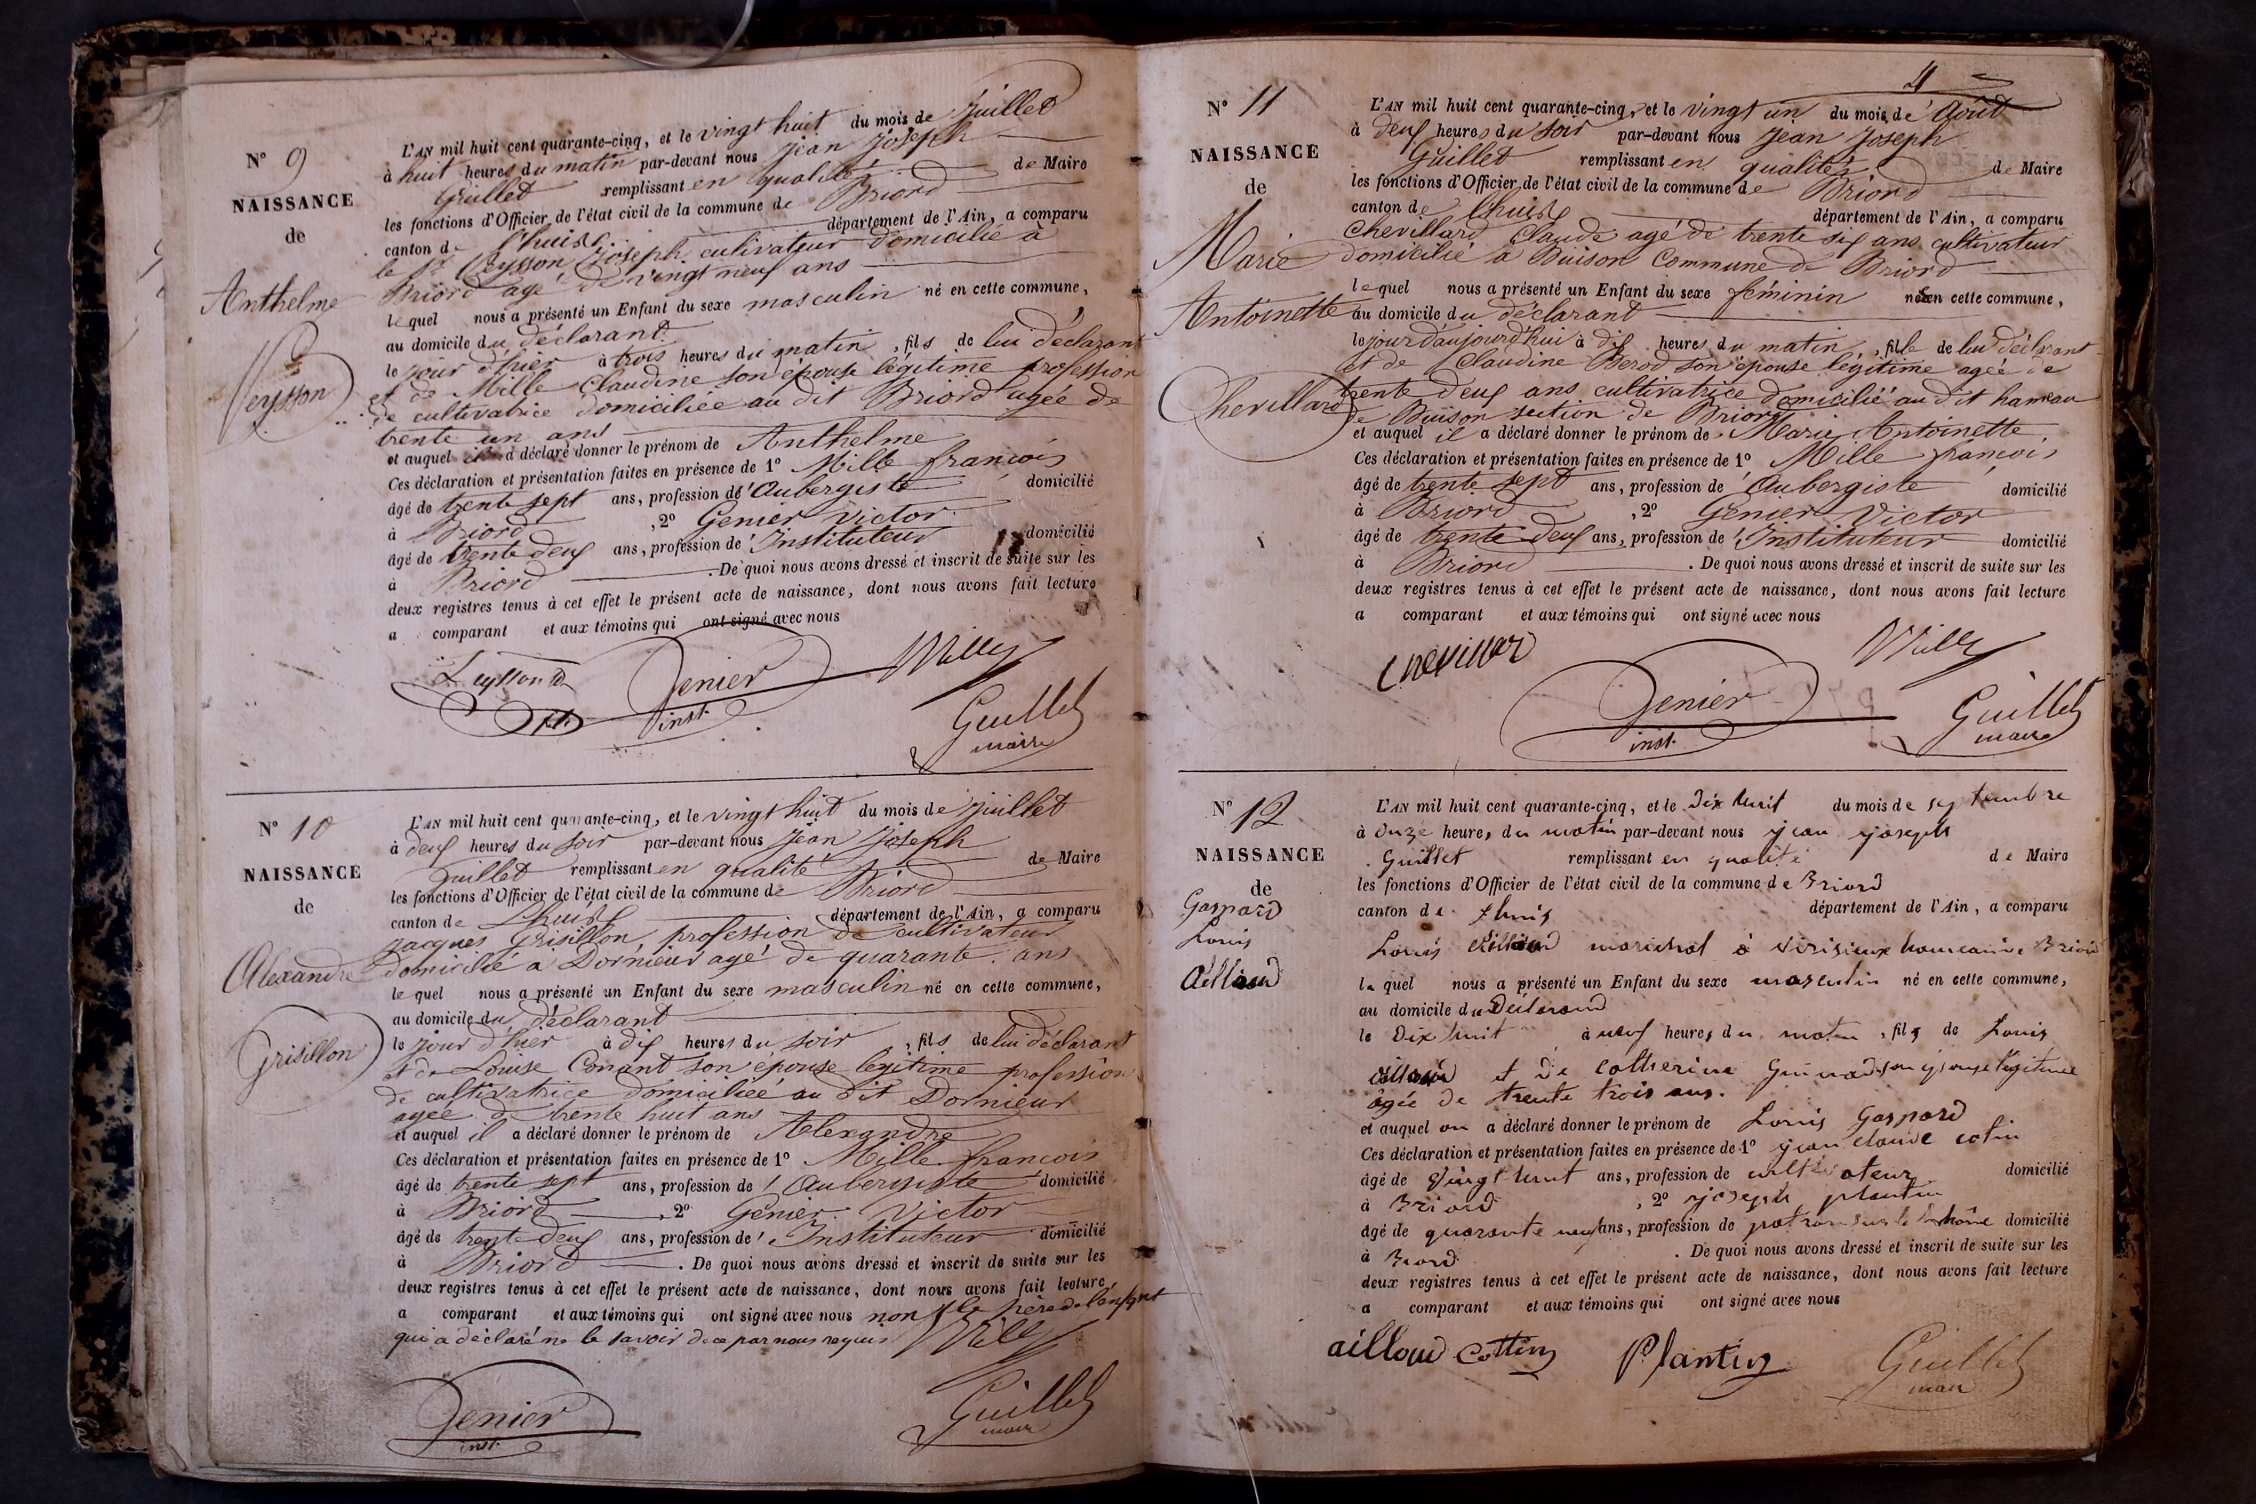 N° 9
NAISSANCE
de
Anthelme
Veysson
L'AN mil huit cent quarante-cinq, et le vingt huit du mois de Juillet
à huit heures du matin par-devant nous Jean Joseph
Guillet remplissant en qualité de Maire
les fonctions d'Officier de l'état civil de la commune de Briord
canton de Lhuis département de l'Ain, a comparu
le Sr Veysson Joseph cultivateur domicilié à
Briord agé de vingt neuf ans
lequel nous a présenté un Enfant du sexe masculin né en cette commune,
au domicile du déclarant
le jour d'hier à trois heures du matin, fils de lui déclarant
et de Mille Claudine son épouse légitime profession
de cultivatrice domiciliée au dit Briord agée de
trente un ans
et auquel a déclaré donner le prénom de Anthelme
Ces déclaration et présentation faites en présence de 1° Mille françois
âgé de trente sept ans, profession d'Aubergiste domicilié
à Briord, 2° Genier Victor
âgé de trente deux ans, profession d'Instituteur domicilié
à Briord. De quoi nous avons dressé et inscrit de suite sur les
deux registres tenus à cet effet le présent acte de naissance, dont nous avons fait lecture
a comparant et aux témoins qui ont signé avec nous
Genier Mille
inst. Guillet
maire
N° 10
NAISSANCE
de
Alexandre
Grisillon
L'AN mil huit cent quarante-cinq, et le vingt huit du mois de Juillet
à deux heures du soir par-devant nous Jean Joseph
Guillet remplissant en qualité de Maire
les fonctions d'Officier de l'état civil de la commune de Briord
canton de Lhuis département de l'Ain, a comparu
Jacques Grisillon profession de cultivateur
domicilié à Dornieur agé de quarante ans
lequel nous a présenté un Enfant du sexe masculin né en cette commune,
au domicile du déclarant
le jour d'hier à dix heures du soir, fils de lui déclarant
et de Louise Conant son épouse légitime profession
de cultivatrice domiciliée au dit Dornieur
agée de trente huit ans
et auquel il a déclaré donner le prénom de Alexandre
Ces déclaration et présentation faites en présence de 1° Mille francois
âgé de trente sept ans, profession d'Aubergiste domicilié
à Briord, 2° Genier Victor
âgé de trente deux ans, profession d'Instituteur domicilié
à Briord. De quoi nous avons dressé et inscrit de suite sur les
deux registres tenus à cet effet le présent acte de naissance, dont nous avons fait lecture
a comparant et aux témoins qui ont signé avec nous non le père de l'enfant
qui a déclaré ne le savoir de ce par nous requis Mille
Genier Guillet
inst. maire
4
N° 11
NAISSANCE
de
Marie
Antoinette
Chevillard
L'AN mil huit cent quarante-cinq, et le vingt un du mois de Août
à deux heures du soir par-devant nous Jean Joseph
Guillet remplissant en qualité de Maire
les fonctions d'Officier de l'état civil de la commune de Briord
canton de Lhuis département de l'Ain, a comparu
Chevillard Claude agé de trente six ans cultivateur
domicilié à Buison Commune de Briord
lequel nous a présenté un Enfant du sexe féminin née en cette commune,
au domicile du déclarant
le jour d'aujourd'hui à dix heures du matin, fille de lui déclarant
et de Claudine Berod son épouse légitime agée de
trente deux ans cultivatrice domicilié au dit hameau
de Buison section de Briord
et auquel il a déclaré donner le prénom de Marie Antoinette
Ces déclaration et présentation faites en présence de 1° Mille françois
âgé de trente sept ans, profession de Aubergiste domicilié
à Briord, 2° Genier Victor
âgé de trente deux ans, profession de Instituteur domicilié
à Briord. De quoi nous avons dressé et inscrit de suite sur les
deux registres tenus à cet effet le présent acte de naissance, dont nous avons fait lecture
a comparant et aux témoins qui ont signé avec nous
chevillard Mille
Genier Guillet
inst. maire
N° 12
NAISSANCE
de
Gaspard
Louis
Ailloud
L'AN mil huit cent quarante-cinq, et le Dix huit du mois de septembre
à onze heures du matin par-devant nous jean joseph
Guillet remplissant en qualité de Maire
les fonctions d'Officier de l'état civil de la commune de Briord
canton de Lhuis département de l'Ain, a comparu
Louis Ailloud marichal à Vérisieux hameau de Briord
lequel nous a présenté un Enfant du sexe masculin né en cette commune,
au domicile du Déclarand
le Dix huit à neuf heures du matin, fils de Louis
ailloud et de Catherine son épouse légitime
âgée de trente trois ans.
et auquel on a déclaré donner le prénom de Louis Gaspard
Ces déclaration et présentation faites en présence de 1° jean claude cotin
âgé de vingt huit ans, profession de cultivateur domicilié
à Briord, 2° joseph plantin
âgé de quarante neuf ans, profession de patron sur le Rhône domicilié
à Briord. De quoi nous avons dressé et inscrit de suite sur les
deux registres tenus à cet effet le présent acte de naissance, dont nous avons fait lecture
a comparant et aux témoins qui ont signé avec nous
ailloud Cottin Plantin Guillet
maire